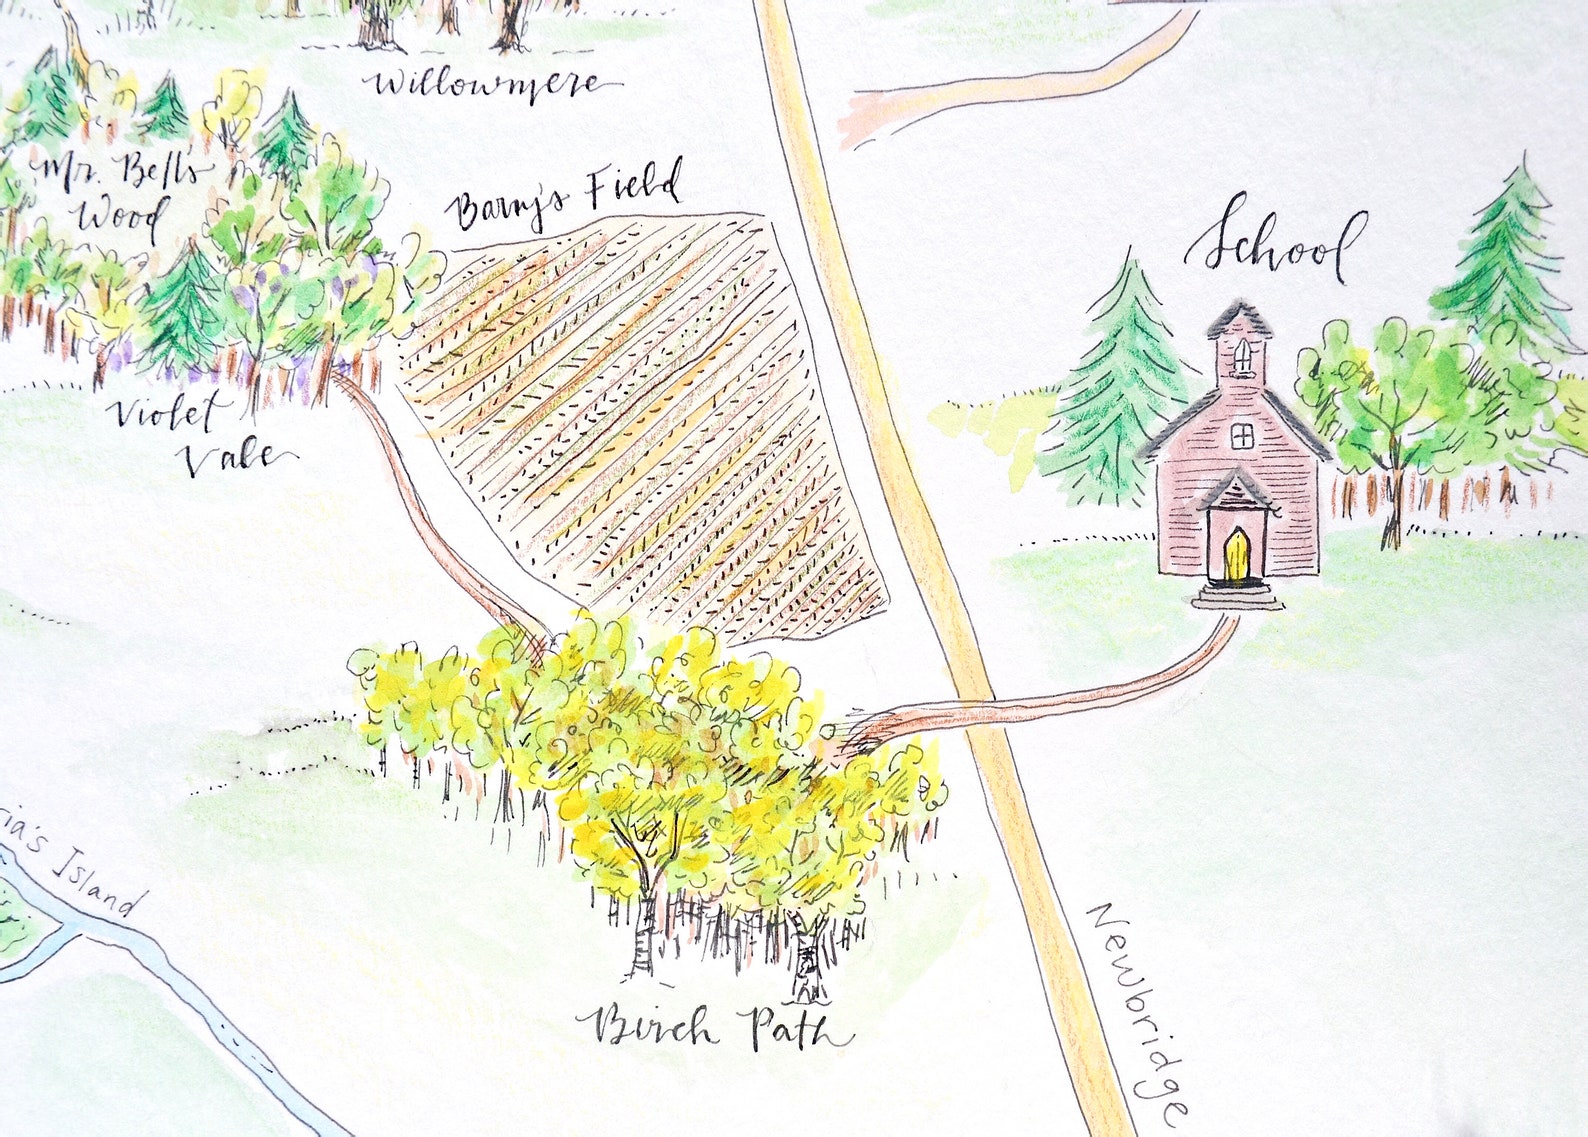 Willowmere
Mr. Bell's
Wood
Barry's Field
School
Violet
Vale
ria's Island
Birch Path
Newbridge